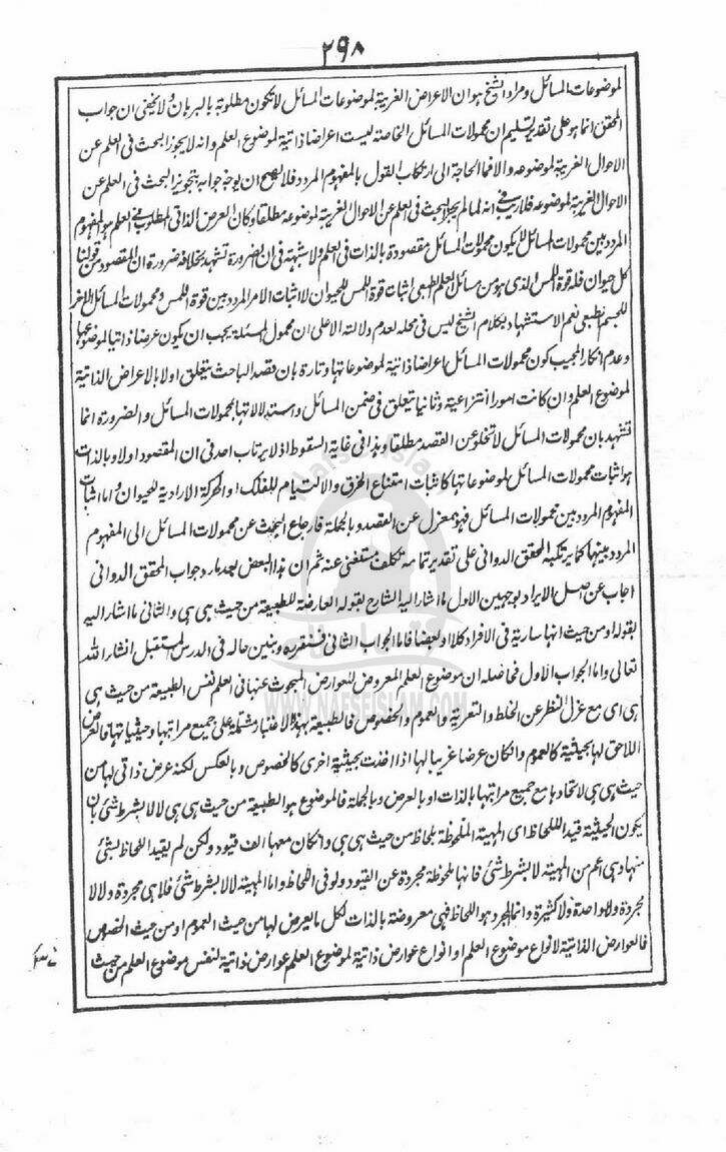 ٢٩٨
لموضوعات المسائل ومراد الشيخ هو ان الاعراض الغريبة لموضوعات المسائل لا تكون مطلوبة بالبرهان ولا يخفى ان جواب
المحقق انما هو على تقدير تسليم ان محمولات المسائل الخاصة ليست اعراضا ذاتية لموضوع العلم وانه لا يجوز البحث فى العلم عن
الاحوال الغريبة لموضوعه والا فما الحاجة الى ارتكاب القول بالمفهوم المردد فلا يصح ان يوجه جوابه بتجويز البحث فى العلم عن
الاحوال الغريبة لموضوعه فلا ريب فى انه لما لم يجز البحث فى العلم عن الاحوال الغريبة لموضوعه مطلقا وكان العرض الذاتى المطلوب فى العلم هو المفهوم
المردد بين محمولات المسائل لا يكون محمولات المسائل مقصودة بالذات فى العلم ولا شبهة فى ان الضرورة تشهد بخلافه ضرورة ان المقصود من قولنا
كل حيوان فله قوة اللمس الذى هو من مسائل العلم الطبعى اثبات قوة اللمس للحيوان لا اثبات الامر المردد بين قوة اللمس ومحمولات المسائل الاخر
للجسم الطبعى نعم الاستشهاد بكلام الشيخ ليس فى محله لعدم دلالته الا على ان محمول المسئلة يجب ان يكون عرضا ذاتيا لموضوعها
وعدم انكار المجيب كون محمولات المسائل اعراضا ذاتية لموضوعاتها وتارة بان قصد الباحث يتعلق اولا بالاعراض الذاتية
لموضوع العلم وان كانت امورا انتزاعية وثانيا تتعلق فى ضمن المسائل واستدلالاتها بمحمولات المسائل والضرورة انما
تشهد بان محمولات المسائل لا تخلو عن القصد مطلقا وهذا فى غاية السقوط اذ لا يرتاب احد فى ان المقصود اولا وبالذات
هو اثبات محمولات المسائل لموضوعاتها كاثبات امتناع الخرق والالتيام للفلك او الحركة الارادية للحيوان واما اثبات
المفهوم المردد بين محمولات المسائل فهو بمعزل عن القصد وبالجملة فارجاع البحث عن محمولات المسائل الى المفهوم
المردد بينها كما يرتكبه المحقق الدوانى على تقدير تمامه تكلف مستغنى عنه ثم ان هذا البعض بعد ما رد جواب المحقق الدوانى
اجاب عن اصل الايراد بوجهين الاول ما اشار اليه الشارح بقوله العارضة للطبيعة من حيث هى هى والثانى ما اشار اليه
بقوله او من حيث انها سارية فى الافراد كلا او بعضا فاما الجواب الثانى فسنقرره ونبين حاله فى الدرس المستقبل انشاء الله
تعالى واما الجواب الاول فحاصله ان موضوع العلم المعروض للعوارض المبحوث عنها فى العلم نفس الطبيعة من حيث هى
هى اى مع عزل النظر عن الخلط والتعرية والعموم والخصوص فالطبيعة بهذا الاعتبار مشتملة على جميع مراتبها وحيثياتها فالعرض
اللاحق لها بحيثية كالعموم وان كان عرضا غريبا لها اذا اخذت بحيثية اخرى كالخصوص وبالعكس لكنه عرض ذاتى لها من
حيث هى هى لاتحادها مع جميع مراتبها بالذات او بالعرض وبالجملة فالموضوع هو الطبيعة من حيث هى هى لا لا بشرط شئ بان
يكون الحيثية قيد اللحاظ اى المهية الملحوظة بلحاظ من حيث هى هى وان كان معها الف قيود ولكن لم يقيد اللحاظ بشئ
منها وهى اعم من المهية لا بشرط شئ فانها ملحوظة مجردة عن القيود ولو فى اللحاظ واما المهية لا لا بشرط شئ فلا هى مجردة ولا لا
مجردة ولا واحدة ولا كثيرة وانما المجرد هو اللحاظ فهى معروضة بالذات لكل ما يعرض لها من حيث العموم او من حيث الخصوص
فالعوارض الذاتية لانواع موضوع العلم او انواع عوارض ذاتية لموضوع العلم عوارض ذاتية لنفس موضوع العلم من حيث
Nafse Islam
WWW.NAFSEISLAM.COM